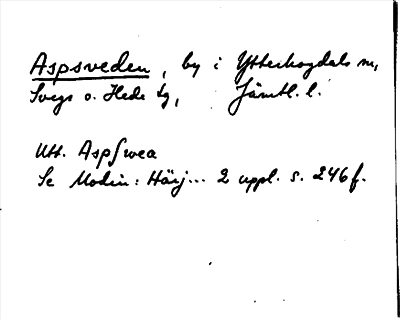 Aspsveden, by i Ytterhogdals sn,
Svegs o. Hede tg, Jämtl. l.
Utt. Asp∫wea
Se Modin: Härj... 2 uppl. s. 246 f.